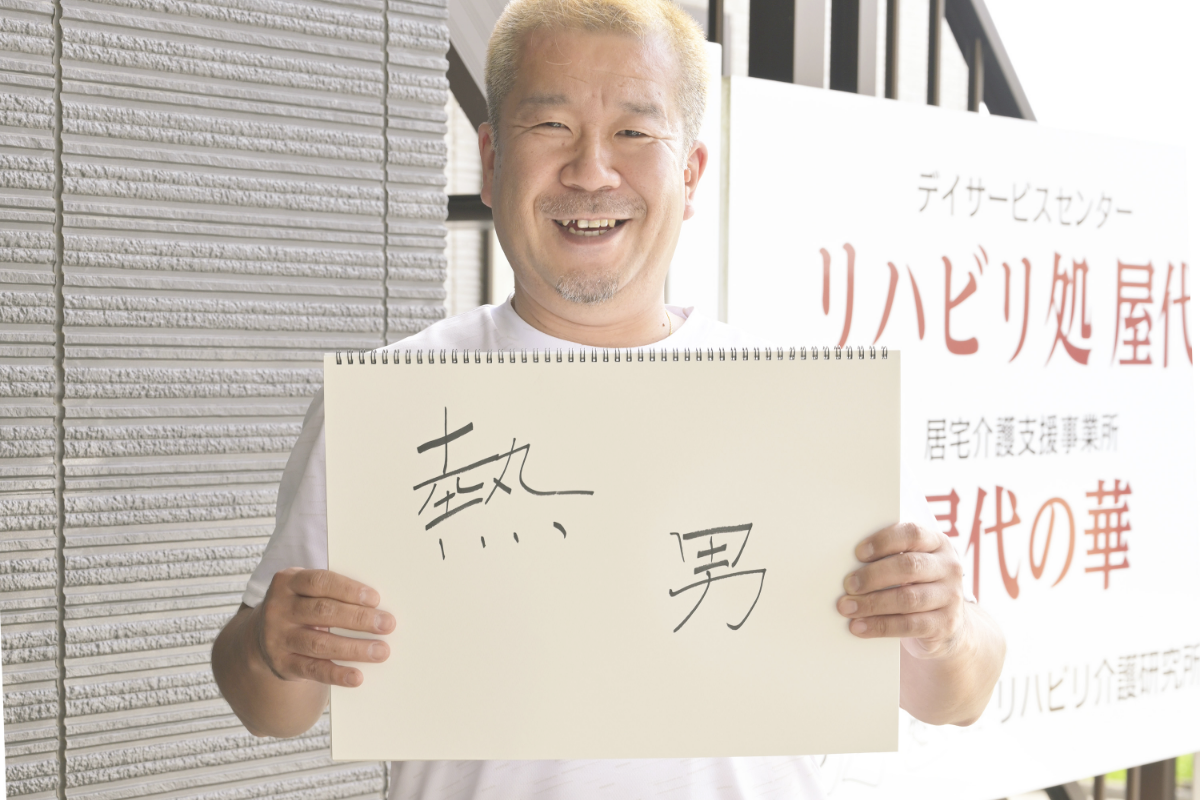 熱
男
デイサービスセンター
リハビリ処 屋代
居宅介護支援事業所
屋代の華
リハビリ介護研究所